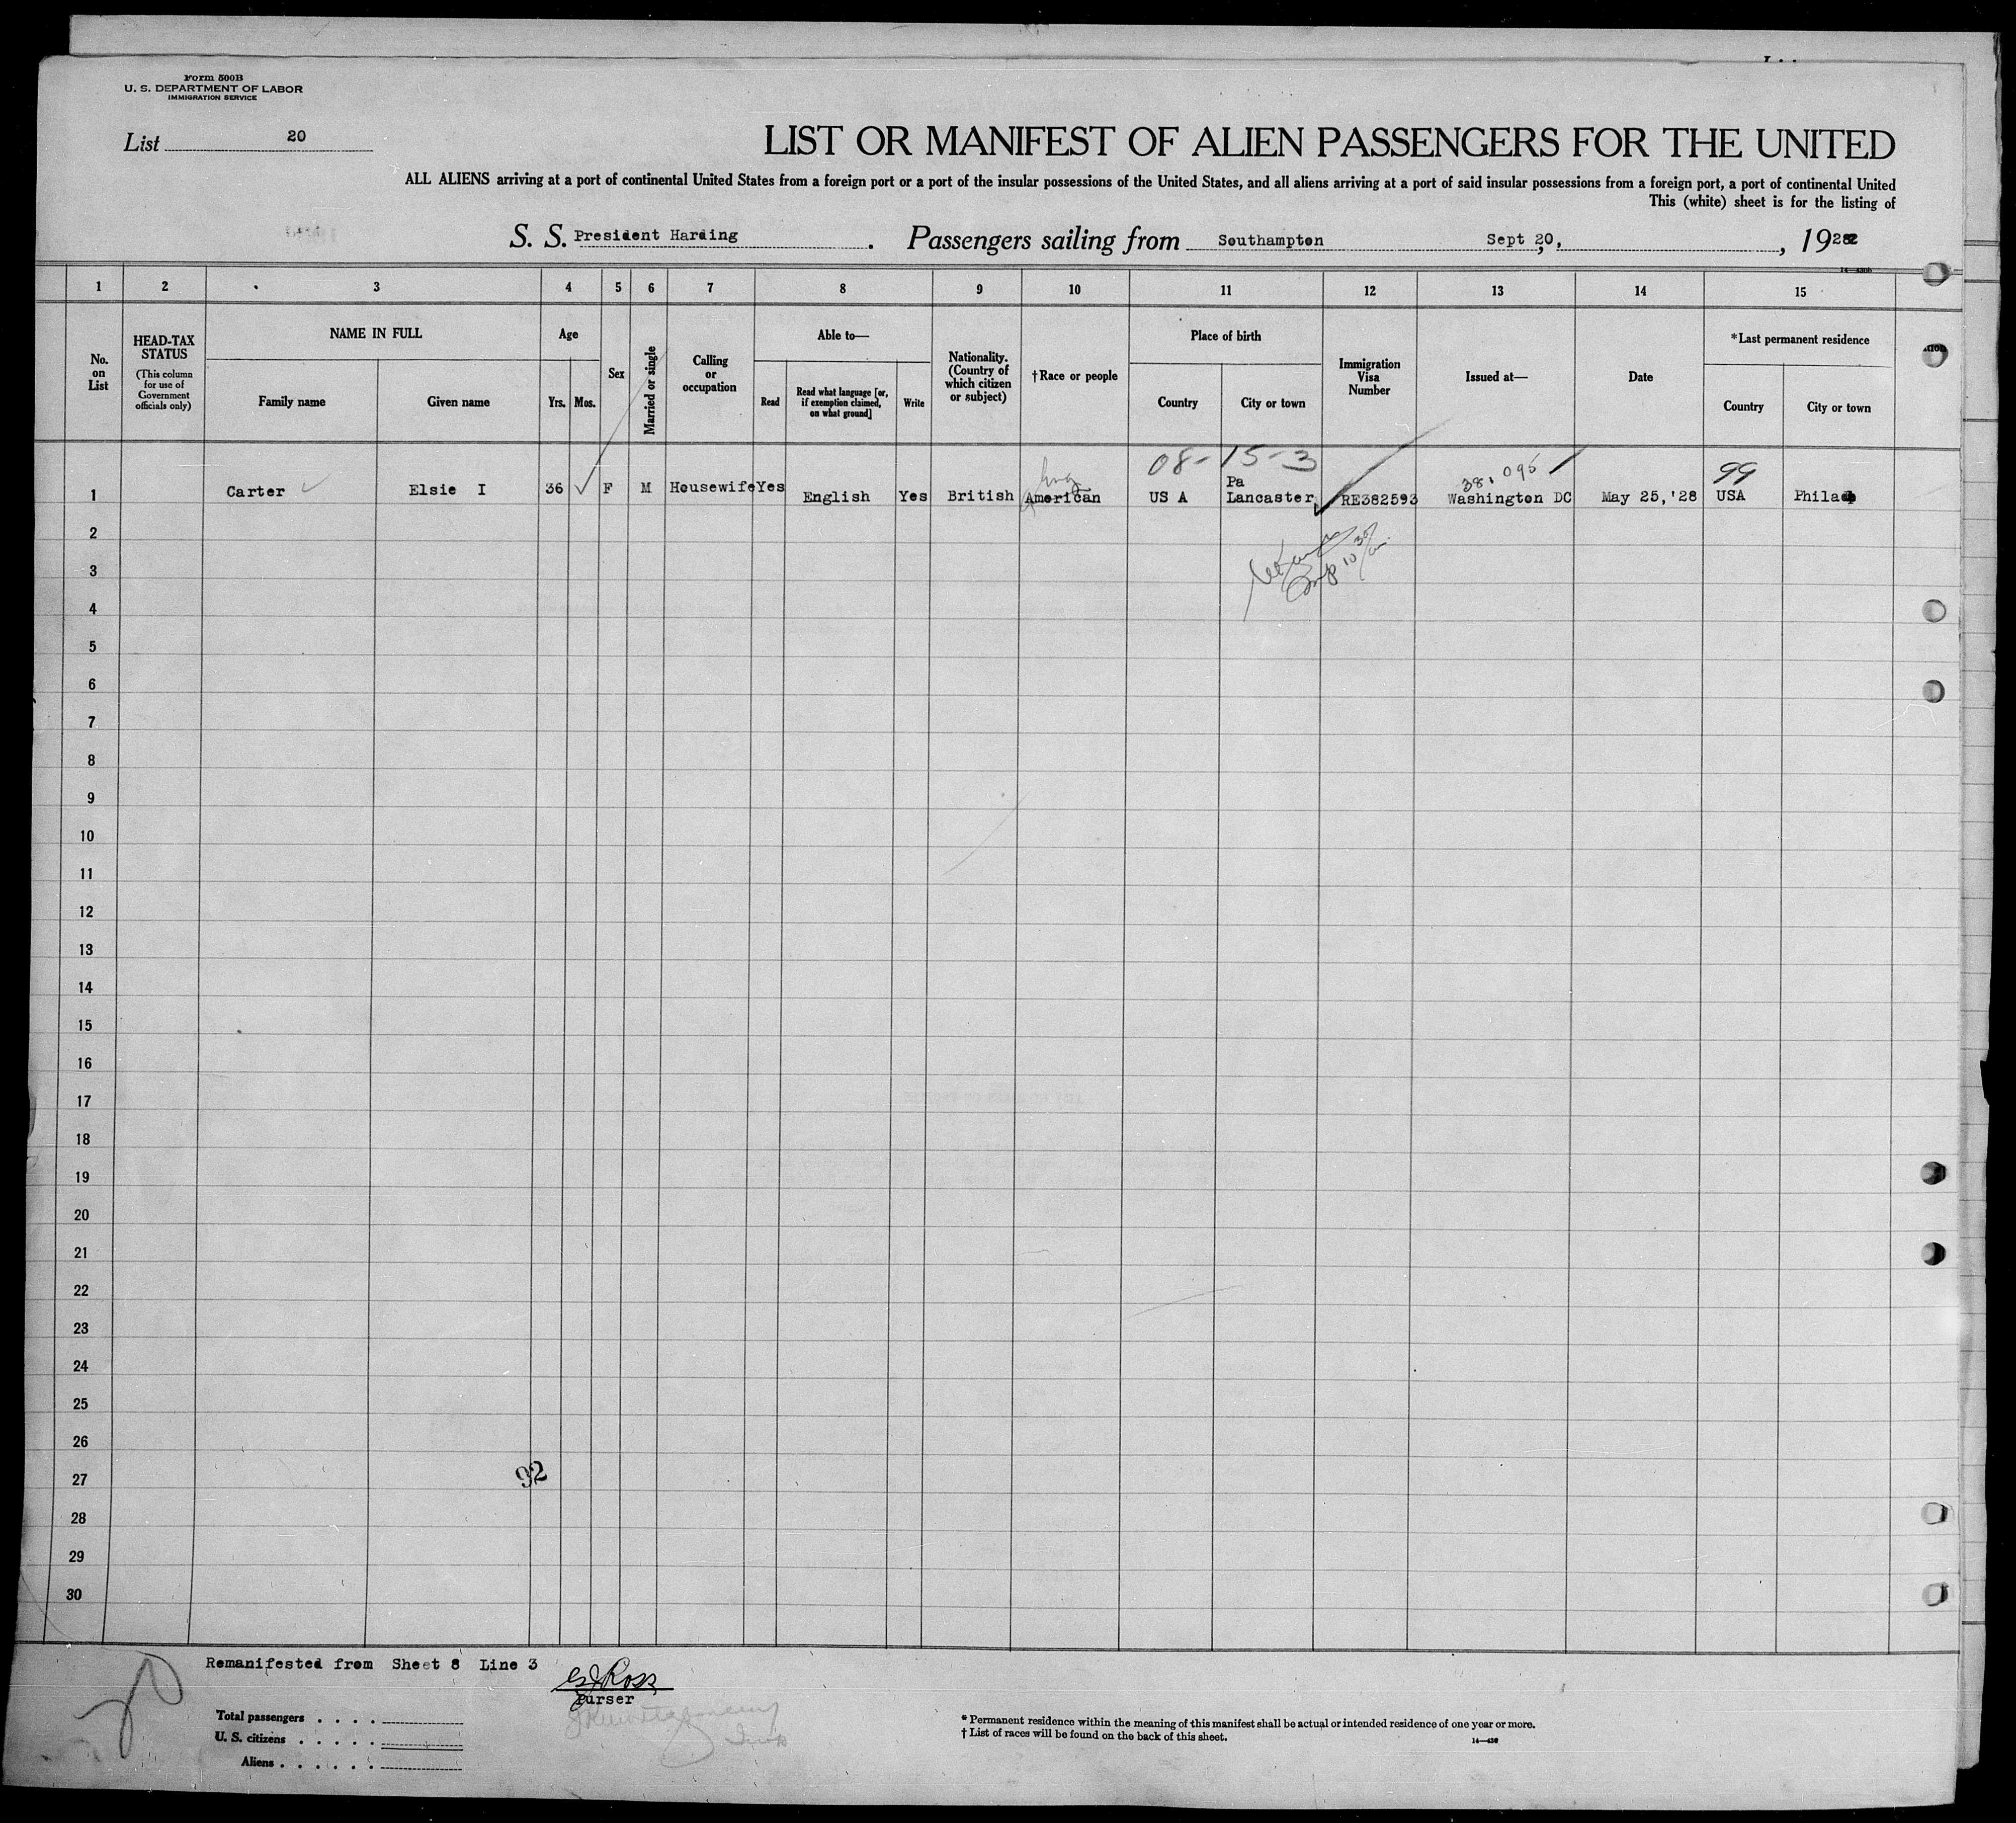 Form 500B
U. S. DEPARTMENT OF LABOR
IMMIGRATION SERVICE
List 20
LIST OR MANIFEST OF ALIEN PASSENGERS FOR THE UNITED
ALL ALIENS arriving at a port of continental United States from a foreign port or a port of the insular possessions of the United States, and all aliens arriving at a port of said insular possessions from a foreign port, a port of continental United
This (white) sheet is for the listing of
S. S. President Harding . Passengers sailing from Southampton Sept 20, , 1928
1 2 3 4 5 6 7 8 9 10 11 12 13 14 15
No. on List
HEAD-TAX STATUS
(This column for use of Government officials only)
NAME IN FULL
Family name Given name
Age
Yrs. Mos.
Sex
Married or single
Calling or occupation
Able to—
Read
Read what language [or, if exemption claimed, on what ground]
Write
Nationality. (Country of which citizen or subject)
†Race or people
Place of birth
Country City or town
Immigration Visa Number
Issued at—
Date
*Last permanent residence
Country City or town
08-15-3 38,095 99
1 Carter Elsie I 36 F M Housewife Yes English Yes British American US A Pa Lancaster RE382593 Washington DC May 25,'28 USA Phila
2
3
4
5
6
7
8
9
10
11
12
13
14
15
16
17
18
19
20
21
22
23
24
25
26
27
92
28
29
30
Remanifested from Sheet 8 Line 3
Ross
Purser
20
Total passengers . . . .
U. S. citizens . . . . .
Aliens . . . . . .
* Permanent residence within the meaning of this manifest shall be actual or intended residence of one year or more.
† List of races will be found on the back of this sheet.
14—430